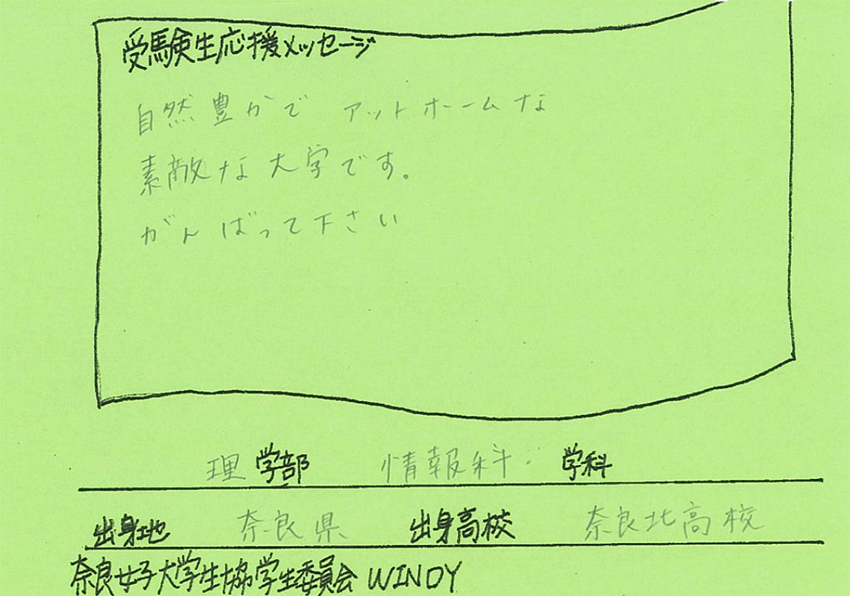 受験生応援メッセージ
自然豊かで アットホームな
素敵な大学です。
がんばって下さい
理 学部 情報科 学科
出身地 奈良県 出身高校 奈良北高校
奈良女子大学生協学生委員会 WINDY